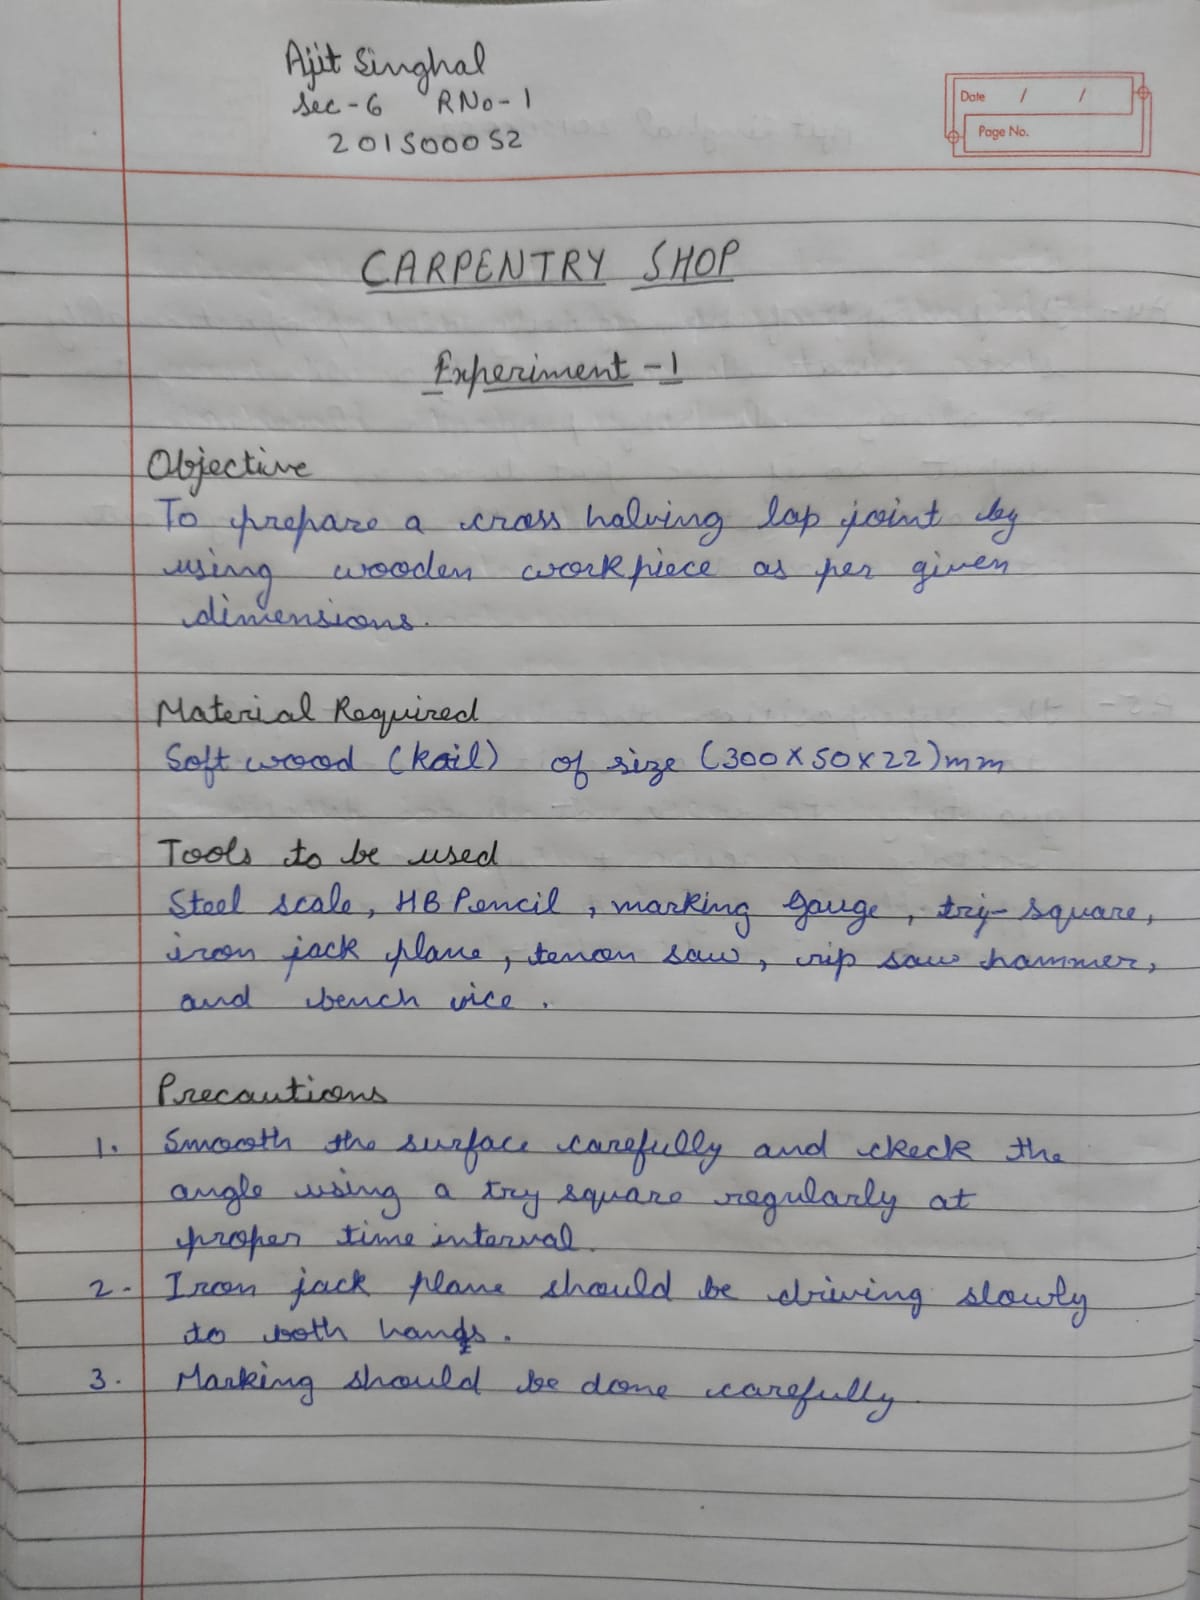 Ajit Singhal
Sec-6 RNo-1
201500052
Date / /
Page No.
CARPENTRY SHOP
Experiment -1
Objective
To prepare a cross halving lap joint by
using wooden workpiece as per given
dimensions.
Material Required
Soft wood (kail) of size (300 x 50 x 22)mm
Tools to be used
Steel scale, HB Pencil, marking gauge, try-square,
iron jack plane, tenon saw, rip saw hammer,
and bench vice.
Precautions
1. Smooth the surface carefully and ckeck the
angle using a try square regularly at
proper time interval.
2. Iron jack plane should be driving slowly
to both hands.
3. Marking should be done carefully.